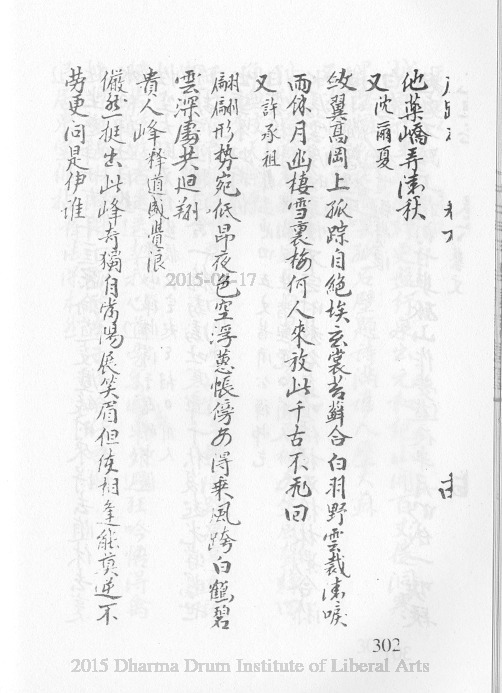 他藥嶠弄清秋
又 沈爾夏
斂翼高岡上孤踪自絕埃玄裳苔蘚合白羽野雲裁清唳
而休月幽棲雪裏梅何人來放此千古不飛回
又 許承祖
翩翩形勢宛低昂夜色空浮蕙帳傍安得乘風跨白鶴碧
雲深處共迴翔
貴人峰 釋道盛覺浪
儼然挺出此峰奇獨自當陽展笑眉但使相逢能莫逆不
勞更问是伊誰
2015-0-17
302
2015 Dharma Drum Institute of Liberal Arts